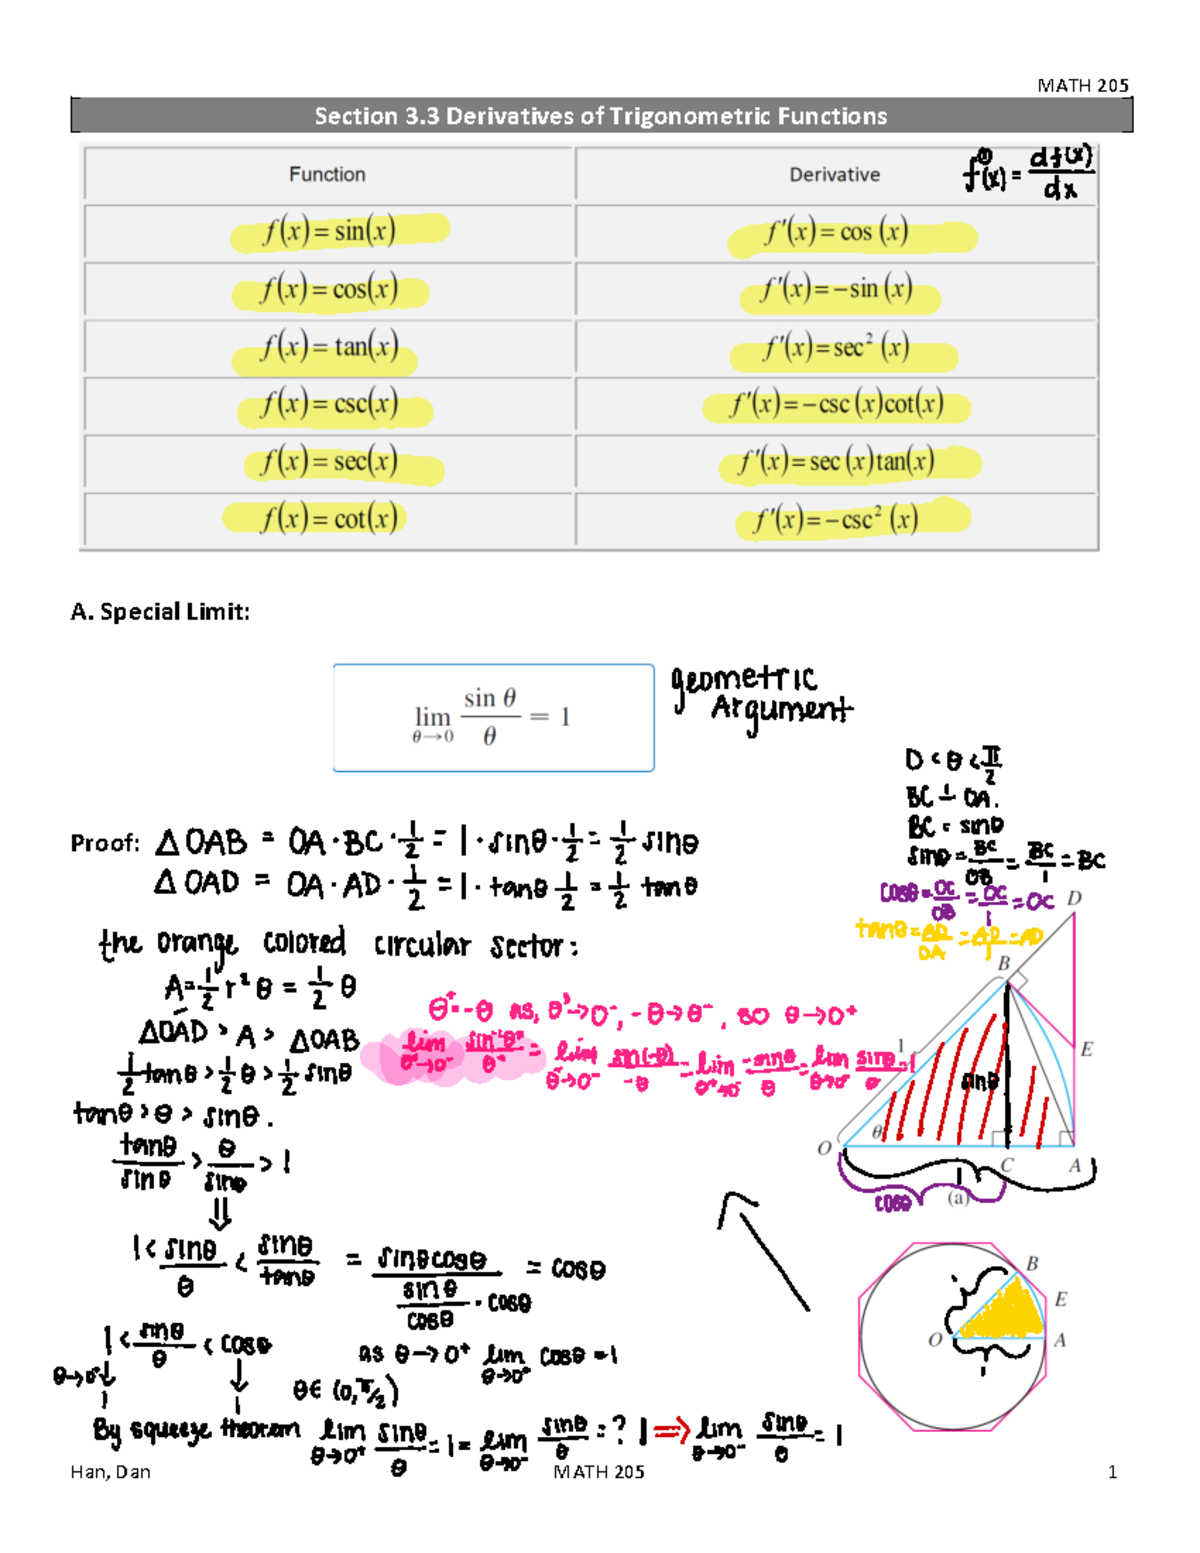 MATH 205
Section 3.3 Derivatives of Trigonometric Functions
Function Derivative f'(x) = df(x)/dx
f(x) = sin(x) f'(x) = cos (x)
f(x) = cos(x) f'(x) = −sin (x)
f(x) = tan(x) f'(x) = sec² (x)
f(x) = csc(x) f'(x) = −csc (x)cot(x)
f(x) = sec(x) f'(x) = sec (x)tan(x)
f(x) = cot(x) f'(x) = −csc² (x)
A. Special Limit:
lim θ→0 sin θ / θ = 1
geometric
Argument
0 < θ < π/2
BC ⊥ OA.
BC = sinθ
sinθ = BC/OB = BC/1 = BC
cosθ = OC/OB = OC/1 = OC
tanθ = AD/OA = AD/1 = AD
Proof: △OAB = OA · BC · 1/2 = 1 · sinθ · 1/2 = 1/2 sinθ
△OAD = OA · AD · 1/2 = 1 · tanθ 1/2 = 1/2 tanθ
the orange colored circular sector:
A = 1/2 r² θ = 1/2 θ
△OAD > A > △OAB
1/2 tanθ > 1/2 θ > 1/2 sinθ
tanθ > θ > sinθ.
tanθ/sinθ > θ/sinθ > 1
⇓
1 < sinθ/θ < sinθ/tanθ = sinθcosθ / (sinθ/cosθ · cosθ) = cosθ
1 < sinθ/θ < cosθ
θ→0⁺ ↓ ↓
1 1
as θ→0⁺ lim θ→0⁺ cosθ = 1
θ∈ (0, π/2)
By squeeze theorem lim θ→0⁺ sinθ/θ = 1 = lim θ→0⁻ sinθ/θ = ? 1 ⇒ lim θ→0⁻ sinθ/θ = 1
D
B
1
E
sinθ
θ
O
C
A
1
cosθ
(a)
B
E
1
O
A
1
Han, Dan MATH 205 1